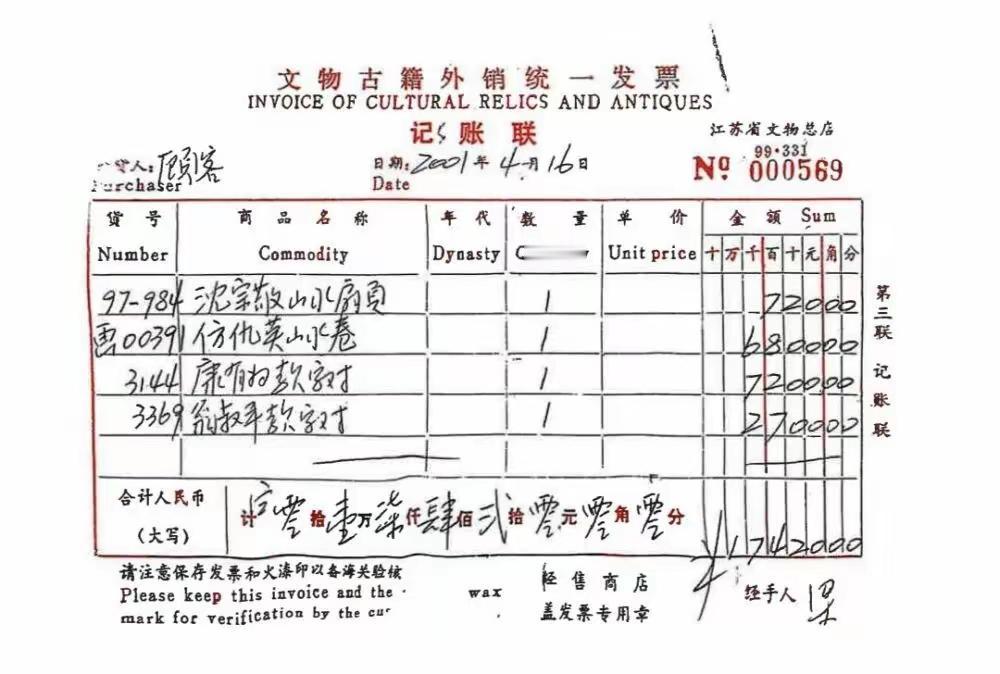 文物古籍外销统一发票
INVOICE OF CULTURAL RELICS AND ANTIQUES
记账联
江苏省文物总店
货人: 顾客
Purchaser
日期: 2001年4月16日
Date
99·331
Nº 000569
货号 商品名称 年代 数量 单价 金额 Sum
Number Commodity Dynasty Unit price 十万千百十元角分
97-984 沈宗敬山水扇页 1 72000
画00391 仿仇英山水卷 1 680000
3144 康有为款字对 1 720000
3369 翁叔平款字对 1 270000
合计人民币
(大写)
计零拾壹万柒仟肆佰贰拾零元零角零分 ¥1742000
第三联 记账联
请注意保存发票和火漆印以备海关验核
Please keep this invoice and the wax
mark for verification by the cus
经售商店
盖发票专用章
经手人